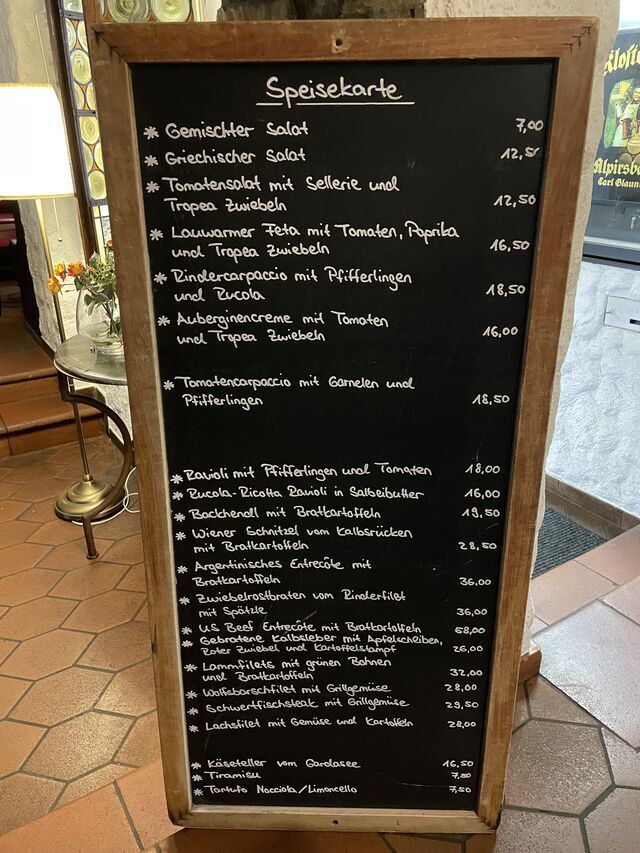 Speisekarte
* Gemischter Salat 7,00
* Griechischer Salat 12,50
* Tomatensalat mit Sellerie und
Tropea Zwiebeln 12,50
* Lauwarmer Feta mit Tomaten, Paprika
und Tropea Zwiebeln 16,50
* Rindercarpaccio mit Pfifferlingen
und Rucola 18,50
* Auberginencreme mit Tomaten
und Tropea Zwiebeln 16,00
* Tomatencarpaccio mit Garnelen und
Pfifferlingen 18,50
* Ravioli mit Pfifferlingen und Tomaten 18,00
* Rucola-Ricotta Ravioli in Salbeibutter 16,00
* Backhendl mit Bratkartoffeln 19,50
* Wiener Schnitzel vom Kalbsrücken
mit Bratkartoffeln 28,50
* Argentinisches Entrecôte mit
Bratkartoffeln 36,00
* Zwiebelrostbraten vom Rinderfilet
mit Spätzle 36,00
* US Beef Entrecôte mit Bratkartoffeln 58,00
* Gebratene Kalbsleber mit Apfelscheiben,
Roter Zwiebel und Kartoffelstampf 26,00
* Lammfilets mit grünen Bohnen
und Bratkartoffeln 32,00
* Wolfsbarschfilet mit Grillgemüse 28,00
* Schwertfischsteak mit Grillgemüse 29,50
* Lachsfilet mit Gemüse und Kartoffeln 28,00
* Käseteller vom Gardasee 16,50
* Tiramisu 7,50
* Tartufo Nocciola/Limoncello 7,50